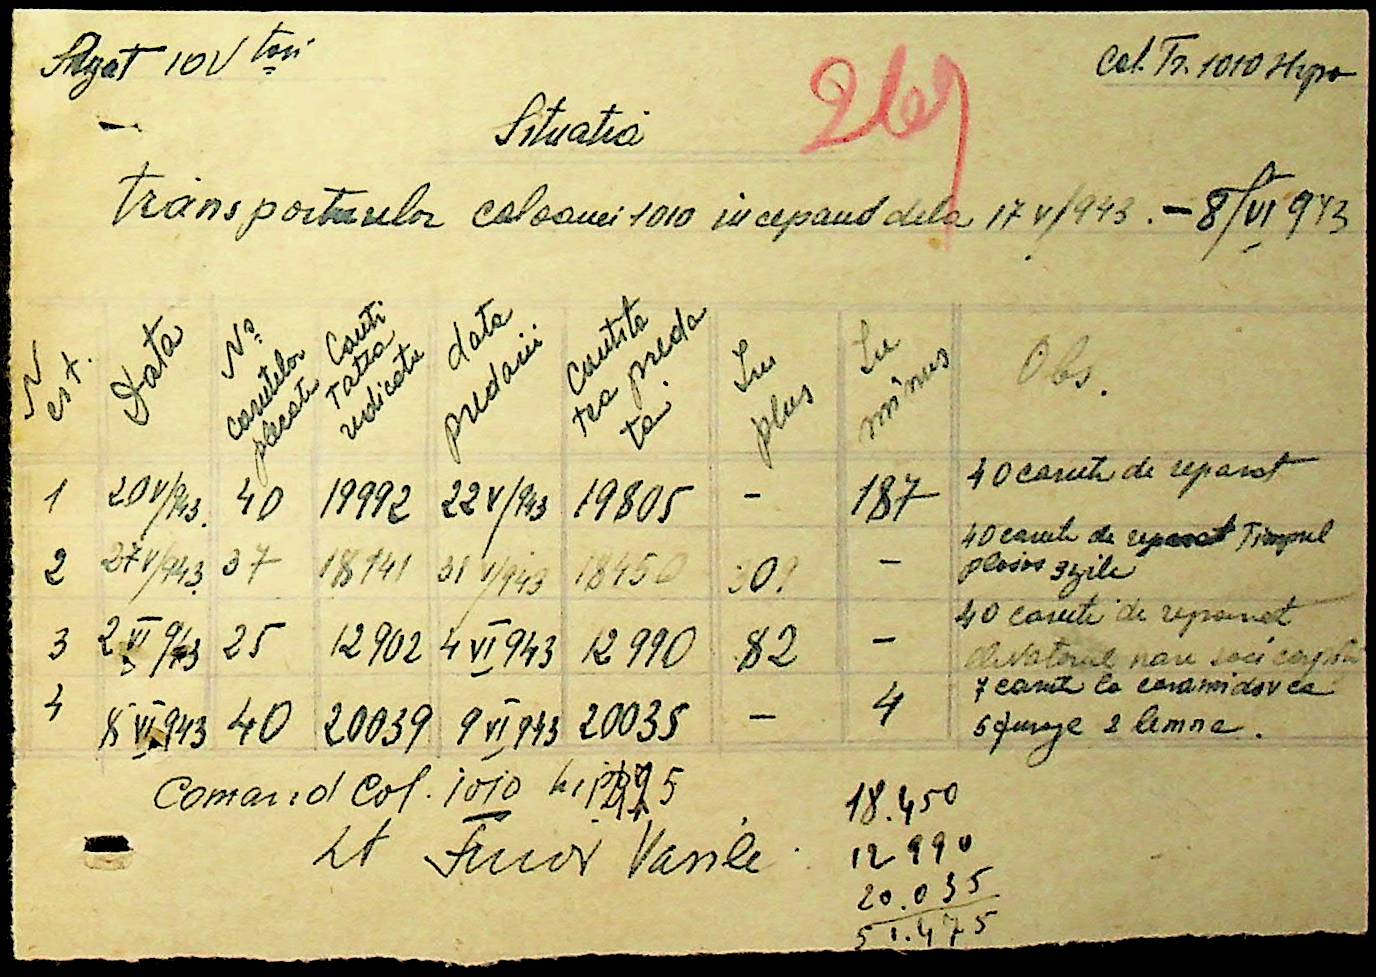 10 V
Col. Tr. 1010 Hipo
269
Situatia
transporturilor coloanei 1010 incepand dela 17 V/943. - 8/VI 943
N crt. Data No carutelor plecate Canti tatea ridicata data predarii Cantita tea preda ta In plus In minus Obs.
1 20 V/943. 40 19992 22 V/943 19805 - 187 40 carute de reparat
2 27 V/943 37 18141 31 V/943 18450 309 - 40 carute de reparat Timpul
ploios 3 zile
3 2 VI 943 25 12902 4 VI 943 12990 82 - 40 carute de reparat
nau saci
4 8 VI 943 40 20039 9 VI 943 20035 - 4 7 carute la
5 furaje 2 lemne.
Comand Col. 1010
18.450
Lt Vasile
12990
20.035
51.475